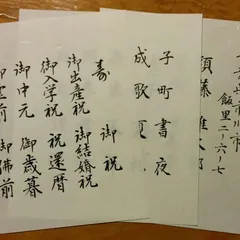 飯里二ー六ー七
須藤雄太郎
子町書夜
成歌頁
寿
御祝
御出産祝
御結婚祝
御入学祝
祝還暦
御中元
御歳暮
御霊前
御佛前